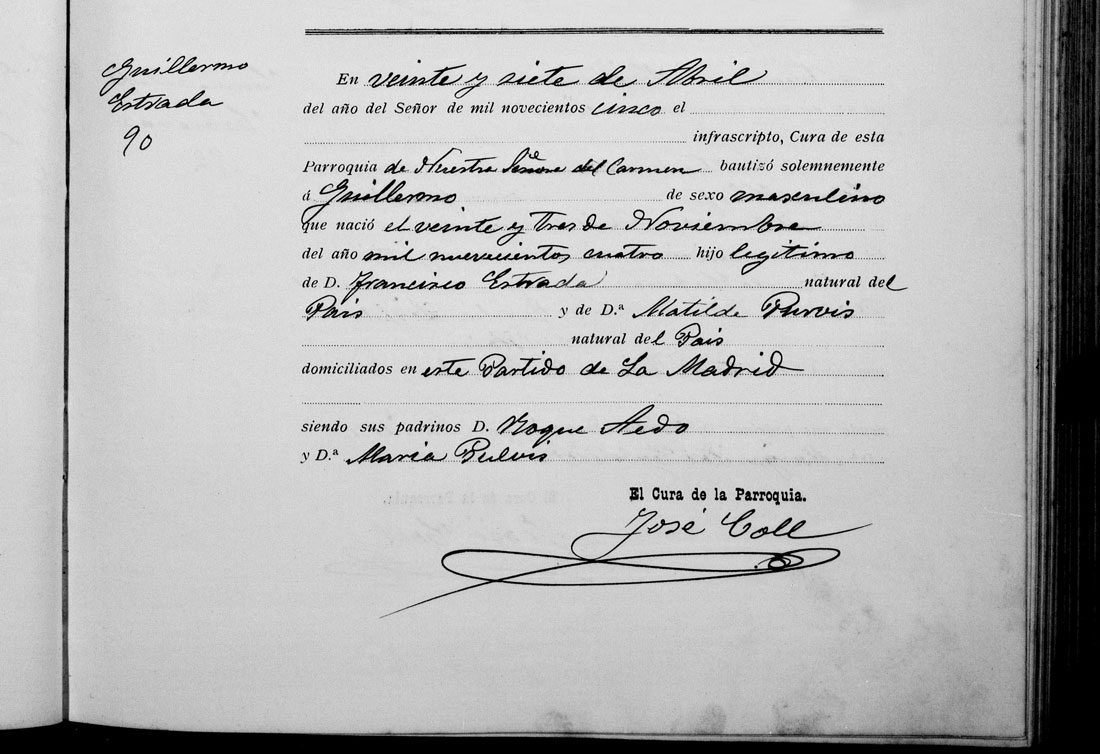 Guillermo
Estrada
90
En veinte y siete de Abril
del año del Señor de mil novecientos cinco el
infrascripto, Cura de esta
Parroquia de Nuestra Señora del Carmen bautizó solemnemente
á Guillermo de sexo masculino
que nació el veinte y tres de Noviembre
del año mil nuevecientos cuatro hijo legítimo
de D. Francisco Estrada natural del
Pais y de D.ª Matilde Purvis
natural del Pais
domiciliados en este Partido de La Madrid
siendo sus padrinos D. Roque Aedo
y D.ª Maria Pulvis
El Cura de la Parroquia.
José Coll